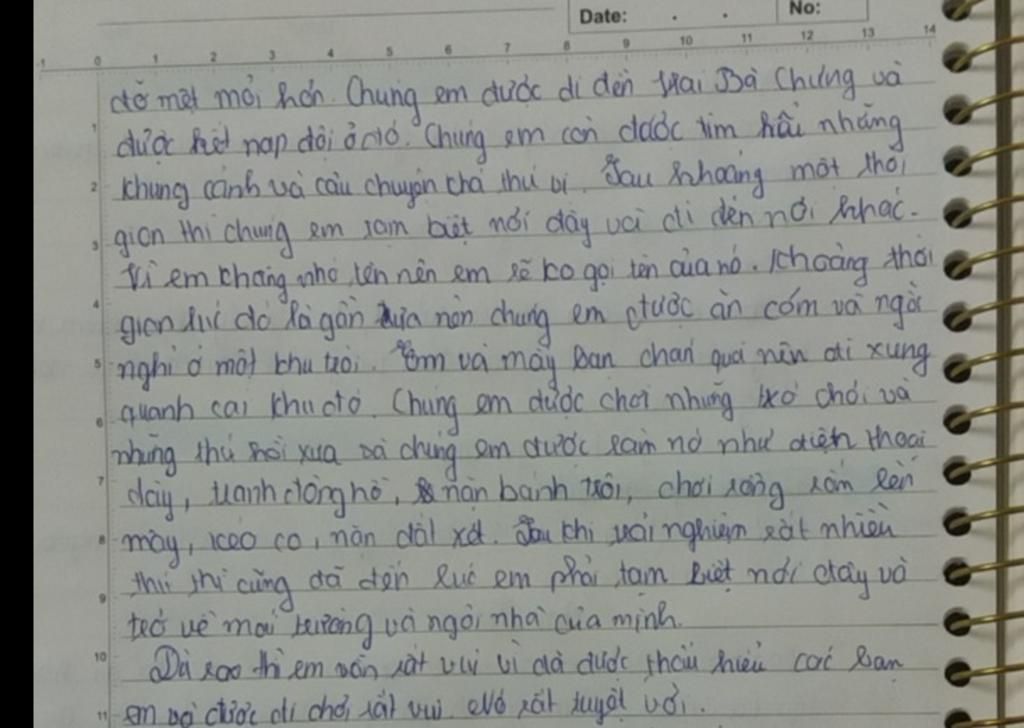 Date: . . No:
-1 0 1 2 3 4 5 6 7 8 9 10 11 12 13 14
đỡ mệt mỏi hơn. Chúng em được đi đến Hai Bà Chưng và
1 được kết nạp đội ở đó. Chúng em còn được tìm hiểu những
2 khung cảnh và câu chuyện khá thú vị. Sau khoảng một thời
3 gian thì chúng em tạm biệt nơi đây và đi đến nơi khác.
Vì em chẳng nhớ tên nên em sẽ ko gọi tên của nó. Khoảng thời
4 gian lúc đó là gần trưa nên chúng em được ăn cơm và ngồi
5 nghỉ ở một khu trời. Em và mấy bạn chán quá nên đi xung
6 quanh cái khu đó. Chúng em được chơi những trò chơi và
7 những thứ hồi xưa và chúng em được làm nó như điện thoại
dây, tranh đông hồ, nặn bánh trôi, chơi rồng rắn lên
8 mây, kéo co, nặn đất xét. Sau khi trải nghiệm rất nhiều
9 thứ thì cũng đã đến lúc em phải tạm biệt nơi đây và
trở về mái trường và ngôi nhà của mình.
10 Dù sao thì em vẫn rất vui vì đã được thấu hiểu các bạn
11 em và được đi chơi rất vui. Nó rất tuyệt vời.